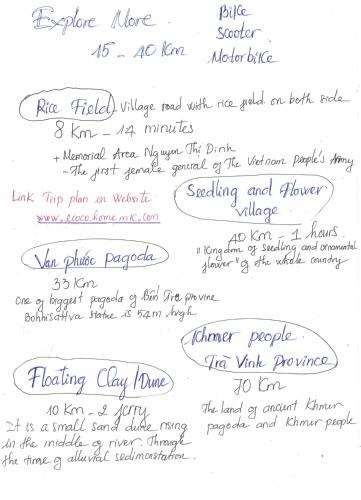 Explore More.
15 - 40 Km
Bike
Scooter
Motorbike
Rice Field. Village road with rice field on both side
8 Km - 14 minutes
+ Memorial Area Nguyen Thi Dinh
- The first female general of The Vietnam People's Army
Link Trip plan on Website
www.ecoco.home.mk.com
Seedling and Flower
village
40 Km - 1 hours.
"Kingdom of seedling and ornamental
flower" of the whole country
Van phước pagoda
33 Km
One of biggest pagoda of Bến Tre provine
Bohhisattva statue is 54m high
Khmer people.
Trà Vinh Province
70 Km
The land of ancient Khmer
pagoda and Khmer people
Floating Clay/Dune
10 Km - 2 ferry
It is a small sand dune rising
in the middle of river. Through
the time of alluvial sedimenstation.